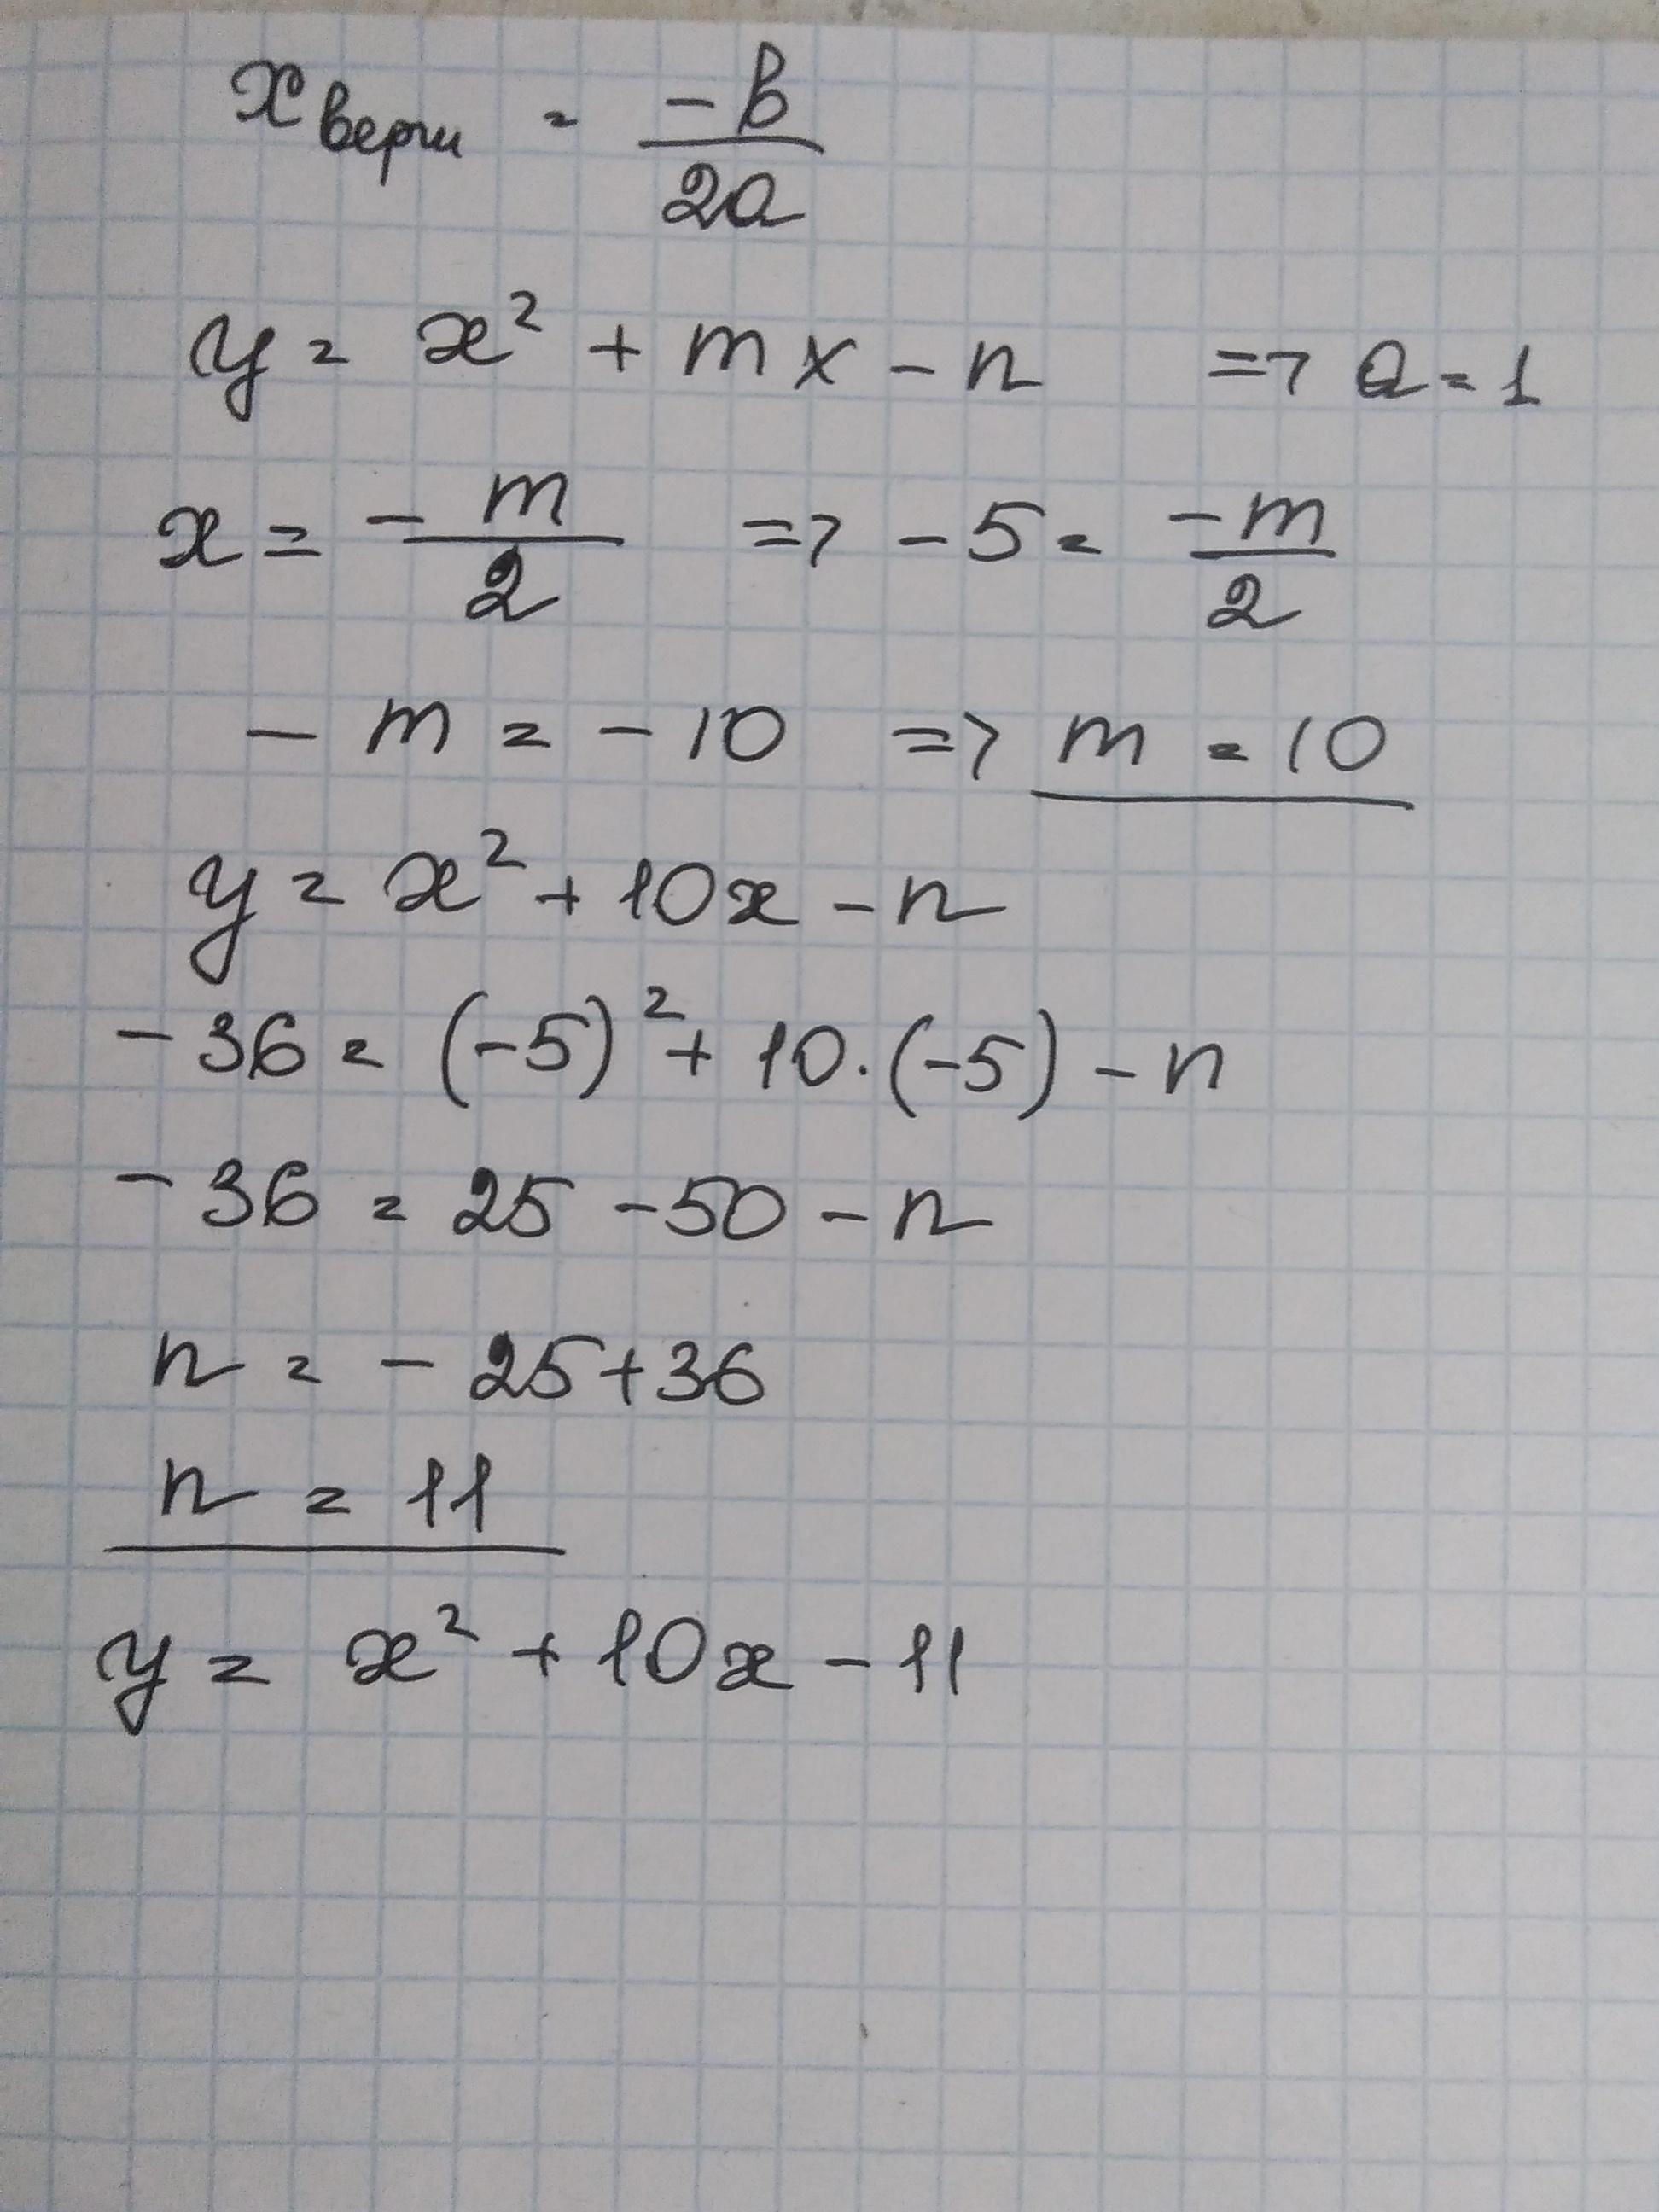 x верш = -b/2a
y = x² + mx - n => a = 1
x = - m/2 => -5 = -m/2
- m = - 10 => m = 10
y = x² + 10x - n
-36 = (-5)² + 10·(-5) - n
-36 = 25 - 50 - n
n = - 25 + 36
n = 11
y = x² + 10x - 11